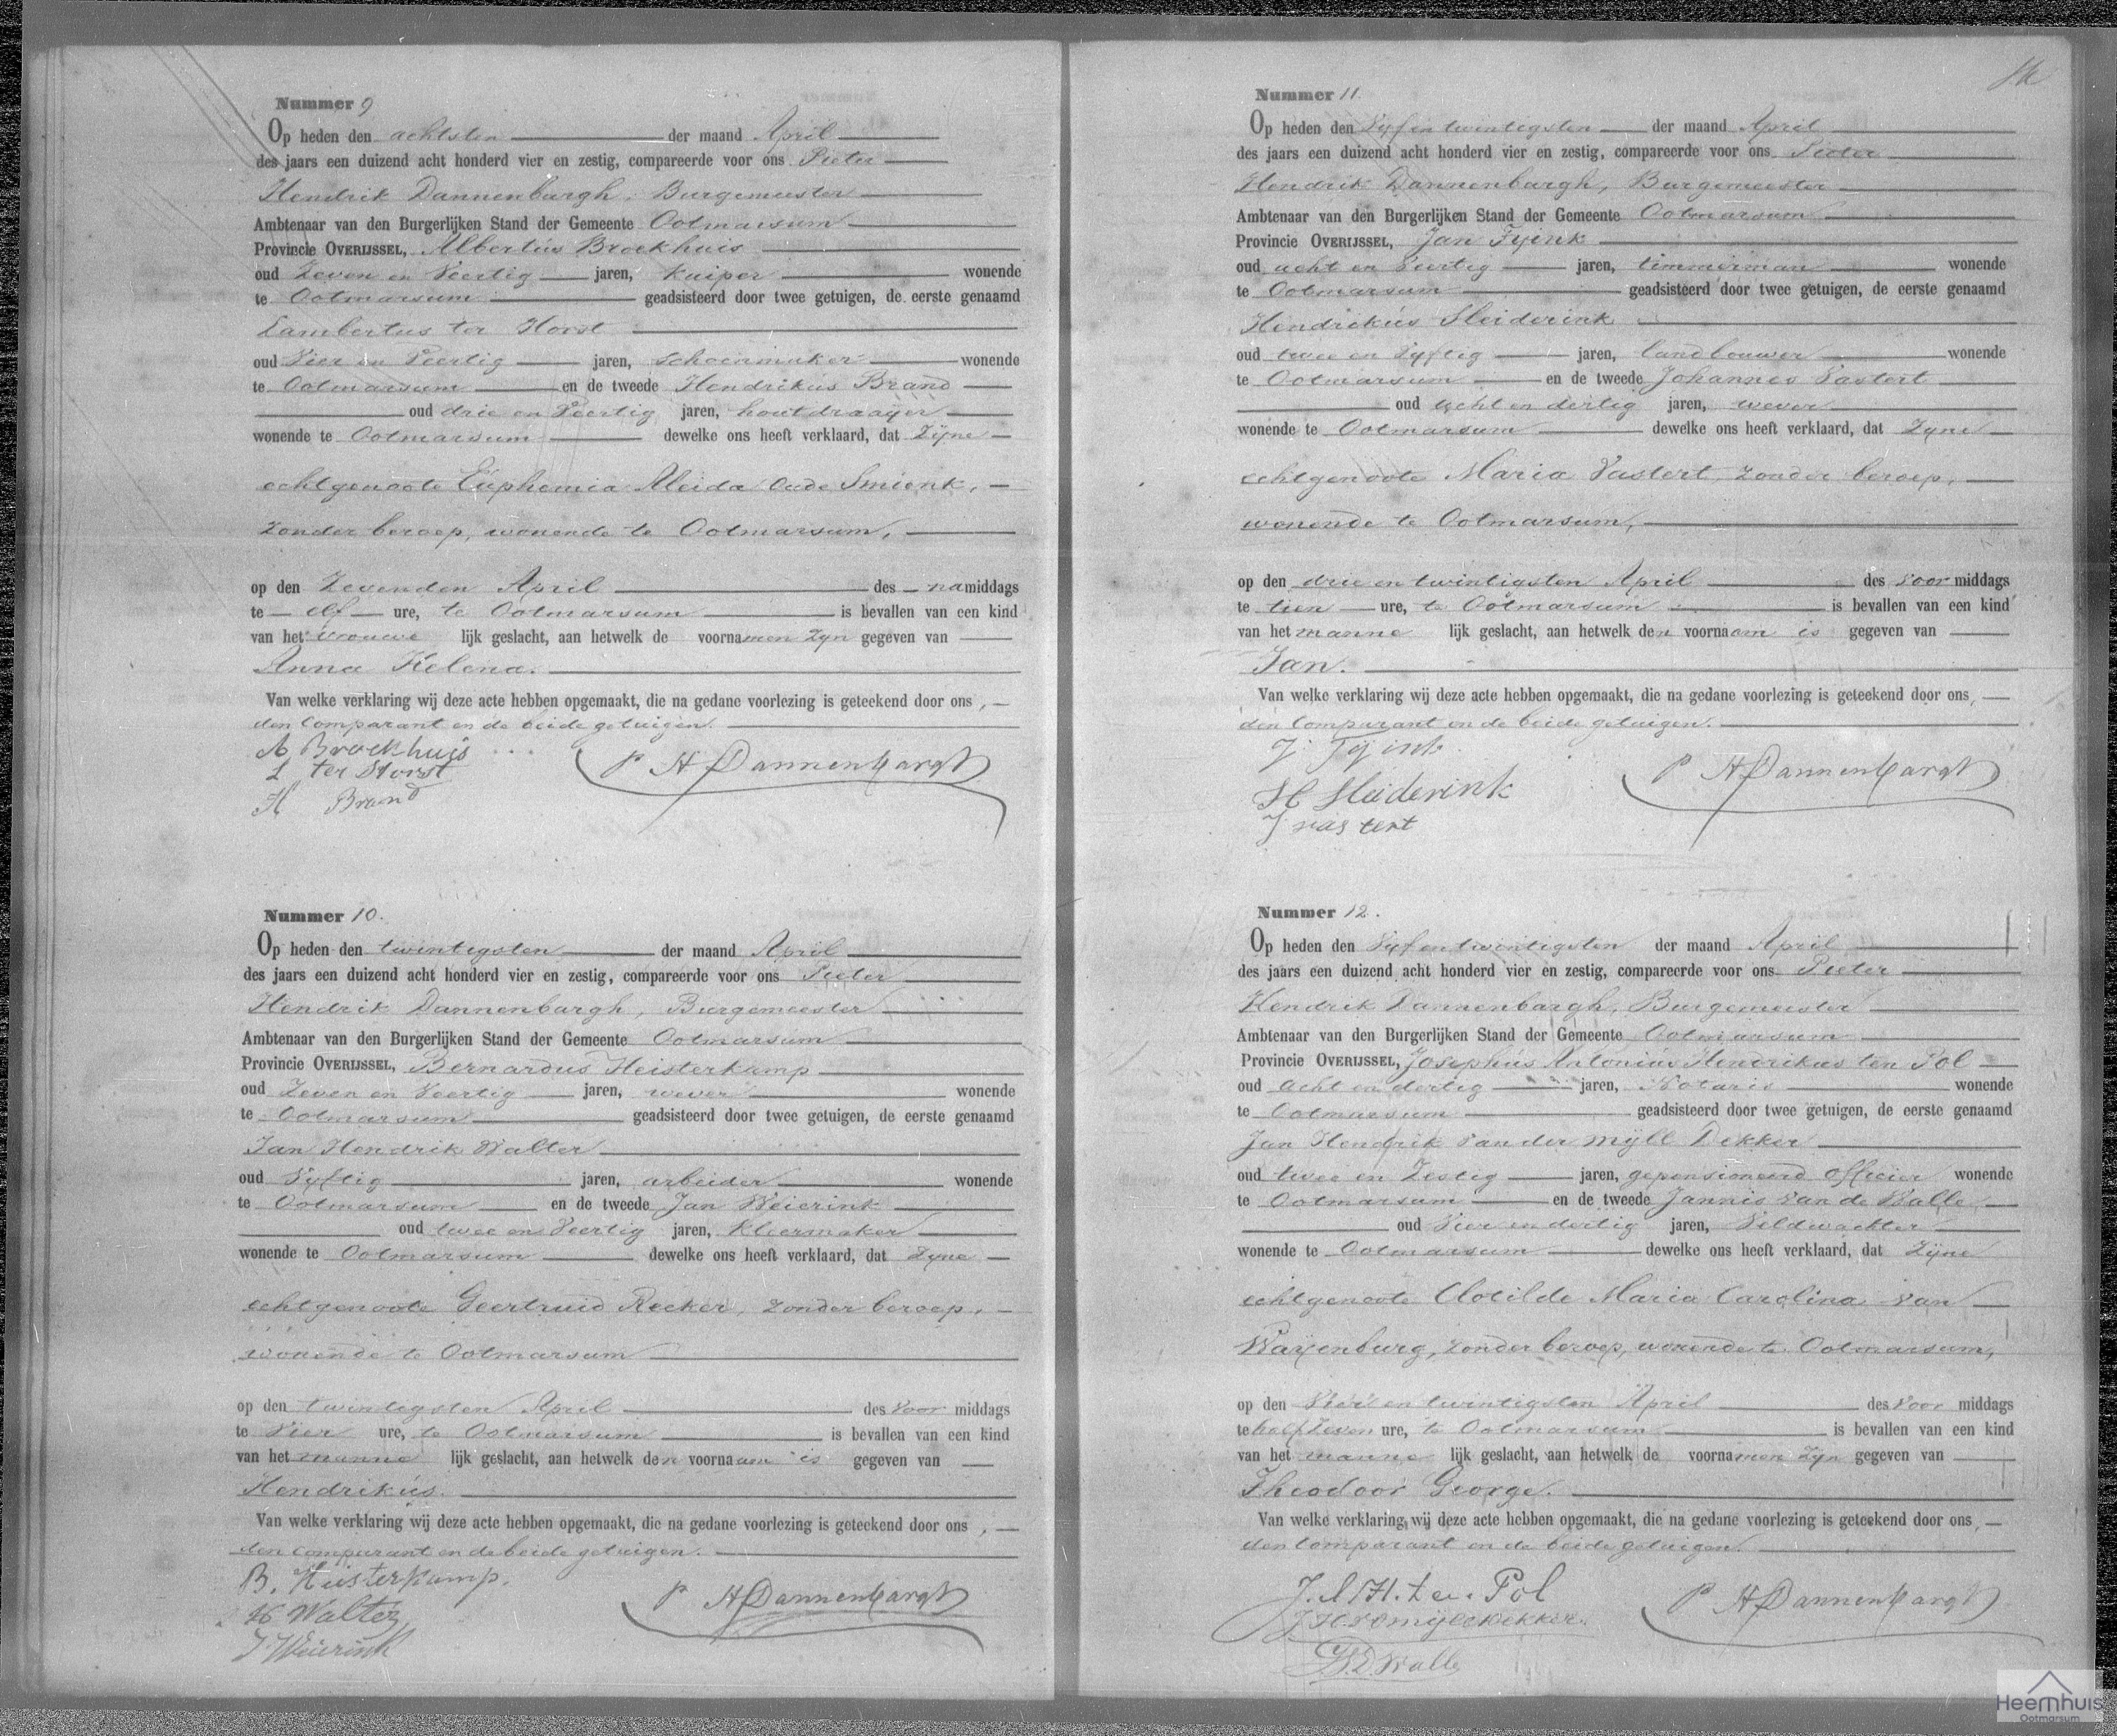 Nummer 9
Op heden den achtsten der maand April
des jaars een duizend acht honderd vier en zestig, compareerde voor ons Pieter
Hendrik Dannenbargh, Burgemeester
Ambtenaar van den Burgerlijken Stand der Gemeente Ootmarsum
Provincie OVERIJSSEL, Albertus Broekhuis
oud Zeven en Veertig jaren, Kuiper wonende
te Ootmarsum geadsisteerd door twee getuigen, de eerste genaamd
Lambertus ter Horst
oud Vier en Veertig jaren, schoenmaker wonende
te Ootmarsum en de tweede Hendrikus Brand
oud drie en Veertig jaren, houtdraayer
wonende te Ootmarsum dewelke ons heeft verklaard, dat Zyne
echtgenoote Euphemia Aleida Oude Smienk,
zonder beroep, wonende te Ootmarsum,
op den Zevenden April des namiddags
te elf ure, te Ootmarsum is bevallen van een kind
van het vrouwe lijk geslacht, aan hetwelk de voornamen Zyn gegeven van
Anna Helena.
Van welke verklaring wij deze acte hebben opgemaakt, die na gedane voorlezing is geteekend door ons,
den Comparant en de beide getuigen.
A Broekhuis
L ter Horst
H Brand
P H Dannenbargh
Nummer 10.
Op heden den twintigsten der maand April
des jaars een duizend acht honderd vier en zestig, compareerde voor ons Pieter
Hendrik Dannenbargh, Burgemeester
Ambtenaar van den Burgerlijken Stand der Gemeente Ootmarsum
Provincie OVERIJSSEL, Bernardus Heisterkamp
oud Zeven en Veertig jaren, wever wonende
te Ootmarsum geadsisteerd door twee getuigen, de eerste genaamd
Jan Hendrik Walter
oud Vyftig jaren, arbeider wonende
te Ootmarsum en de tweede Jan Weierink
oud twee en Veertig jaren, Kleermaker
wonende te Ootmarsum dewelke ons heeft verklaard, dat Zyne
echtgenoote Geertruid Reeker, zonder beroep,
wonende te Ootmarsum
op den twintigsten April des Voor middags
te Vier ure, te Ootmarsum is bevallen van een kind
van het manne lijk geslacht, aan hetwelk den voornaam is gegeven van
Hendrikus.
Van welke verklaring wij deze acte hebben opgemaakt, die na gedane voorlezing is geteekend door ons,
den comparant en de beide getuigen.
B. Heisterkamp.
H Walter
J Weierink
P H Dannenbargh
Nummer 11.
Op heden den Vyf en twintigsten der maand April
des jaars een duizend acht honderd vier en zestig, compareerde voor ons Pieter
Hendrik Dannenbargh, Burgemeester
Ambtenaar van den Burgerlijken Stand der Gemeente Ootmarsum
Provincie OVERIJSSEL, Jan Tyink
oud acht en Veertig jaren, timmerman wonende
te Ootmarsum geadsisteerd door twee getuigen, de eerste genaamd
Hendrikus Sleiderink
oud twee en Vyftig jaren, landbouwer wonende
te Ootmarsum en de tweede Johannes Vastert
oud acht en dertig jaren, wever
wonende te Ootmarsum dewelke ons heeft verklaard, dat Zyne
echtgenoote Maria Vastert, zonder beroep,
wonende te Ootmarsum,
op den drie en twintigsten April des Voor middags
te tien ure, te Ootmarsum is bevallen van een kind
van het manne lijk geslacht, aan hetwelk den voornaam is gegeven van
Jan.
Van welke verklaring wij deze acte hebben opgemaakt, die na gedane voorlezing is geteekend door ons,
den Comparant en de beide getuigen.
J Tyink
H Sleiderink
J vastert
P H Dannenbargh
Nummer 12.
Op heden den Vyf en twintigsten der maand April
des jaars een duizend acht honderd vier en zestig, compareerde voor ons Pieter
Hendrik Dannenbargh, Burgemeester
Ambtenaar van den Burgerlijken Stand der Gemeente Ootmarsum
Provincie OVERIJSSEL, Josephus Antonius Hendrikus ten Pol
oud acht en dertig jaren, Notaris wonende
te Ootmarsum geadsisteerd door twee getuigen, de eerste genaamd
Jan Hendrik van der Mÿll Dekker
oud twee en Zestig jaren, gepensioneerd Officier wonende
te Ootmarsum en de tweede Jannis Van de Walle
oud Vier en dertig jaren, Veldwachter
wonende te Ootmarsum dewelke ons heeft verklaard, dat Zÿne
echtgenoote Clotilde Maria Carolina Van
Wayenburg, zonder beroep, wonende te Ootmarsum,
op den Vier en twintigsten April des Voor middags
te half Zeven ure, te Ootmarsum is bevallen van een kind
van het manne lijk geslacht, aan hetwelk de voornamen Zyn gegeven van
Theodoor George.
Van welke verklaring wij deze acte hebben opgemaakt, die na gedane voorlezing is geteekend door ons,
den Comparant en de beide getuigen.
J. A H. ten Pol
P H Dannenbargh
Heemhuis
Ootmarsum